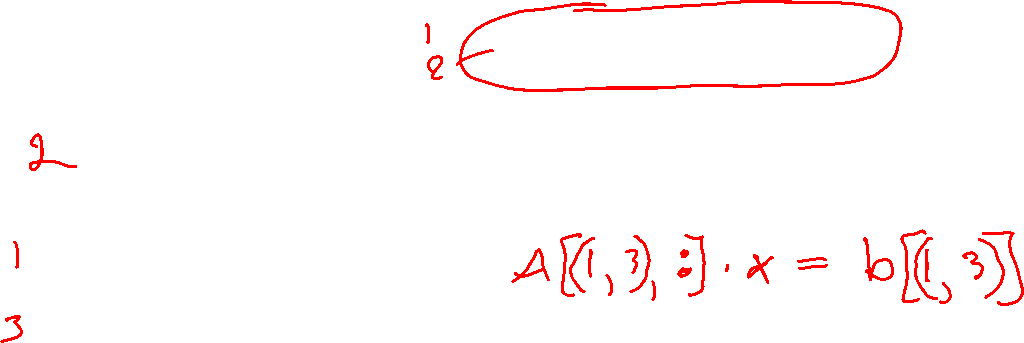 1
2
2
1
A[(1,3),:]·x = b[(1,3)]
3